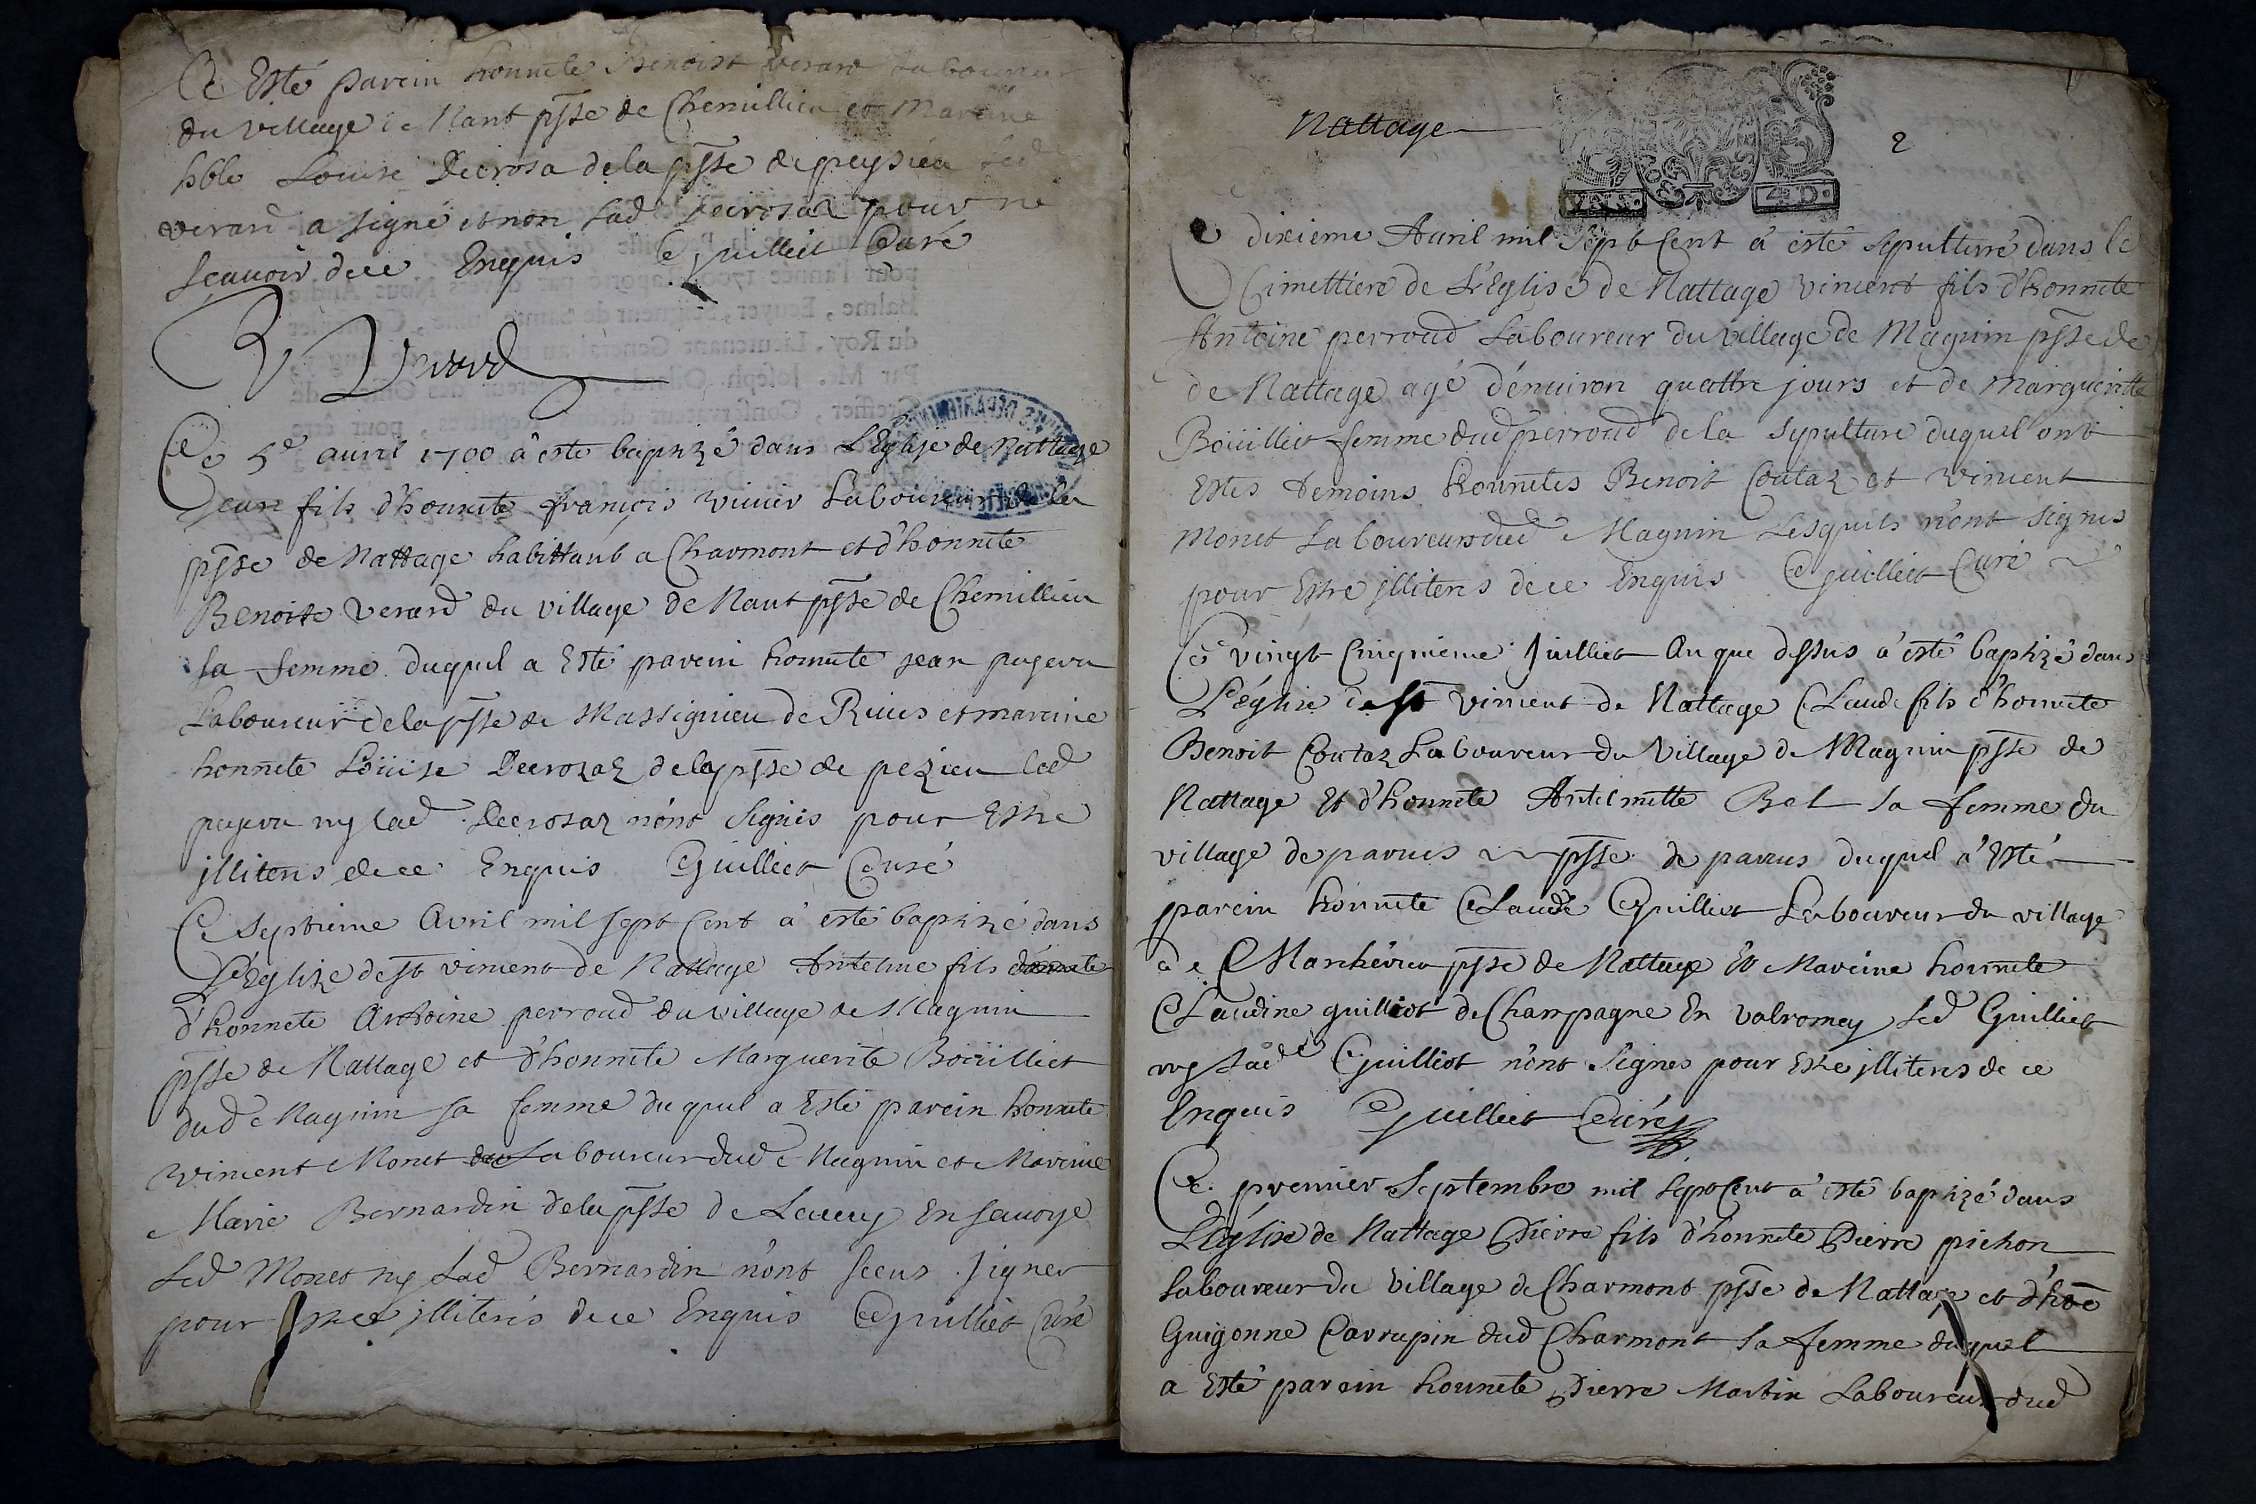 Et Esté parein honneste Benoist verard Laboureur
du village de Nant psse de Chemillieu et Mareine
hble Louise Decrosa de la psse de peysieu Led
verard a signé et non Lad Decrosaz pour ne
sçauoir de ce Enquis Guilliet Curé
Verard
Ce 5e auril 1700 â esté baptizé dans L'Eglise de Nattage
Jean fils d'honneste françois viuier Laboureur de la
psse de Nattage habittant a Charmont et d'honneste
Benoite verard du village de Nant psse de Chemillieu
sa femme duquel a Esté parein honneste jean pugeva
Laboureur de la psse de Massignieu de Riues et mareine
honneste Loüise Decrozaz de la psse de pezieu led
pugeva ny lad Decrosaz n'ont Signés pour Estre
jlliterés de ce Enquis Guilliet Curé
Ce septieme Avril mil sept Cent a' esté baptizé dans
L'Eglize de st vincent de Nattage Antelme fils
d'honneste Anthoine perroud du village de Magnin
psse de Nattage et d'honneste Marguerite Boüilliet
dud Magnin sa femme duquel a Esté parein honneste
vincent Monet Laboureur dud Magnin et Mareine
Marie Bernardin de la psse de Lucey En sauoye
Led Monet ny Lad Bernardin n'ont sceus signer
pour Estre jlliterés de ce Enquis Guilliet Curé
Nattage
2
4 D.
Ce dixieme Auril mil sept Cent a' esté sepulturé dans le
Cimettiere de L'Eglise de Nattage vincent fils d'honneste
Antoine perroud Laboureur du village de Magnin psse de
de Nattage agé d'énuiron quattre jours et de Margueritte
Boüilliet femme dud perroud de la sepulture duquel ont
Estés temoins honnestes Benoit Coutaz et vincent
Monet Laboureurs dud Magnin Lesquels n'ont signes
pour Estre jlliterés de ce Enquis Guilliet Curé
Ce vingt Cinquieme Juilliet An que dessus a' esté baptizé dans
L'église de st vincent de Nattage Claude fils d'honneste
Benoit Coutaz Laboureur du village de Magnin psse de
Nattage Et d'honneste Antelmette Bel sa femme du
village de parues psse de parues duquel a' Esté
parein honneste Claude Guilliet Laboureur du village
de Marchérieu psse de Nattage Et Mareine honneste
Claudine guilliot de Champagne En valromey Led Guilliet
ny Lade Guilliot n'ont signes pour Estre jlliterés de ce
Enquis Guilliet Curé
Ce premier Septembre mil sept Cent a' esté baptizé dans
L'Eglise de Nattage Pierre fils d'honneste Pierre pichon
Laboureur du village de Charmont psse de Nattage et d'hôe
Guigonne Carrupin dud Charmont sa femme duquel
a Esté parein honneste Pierre Martin Laboureur dud